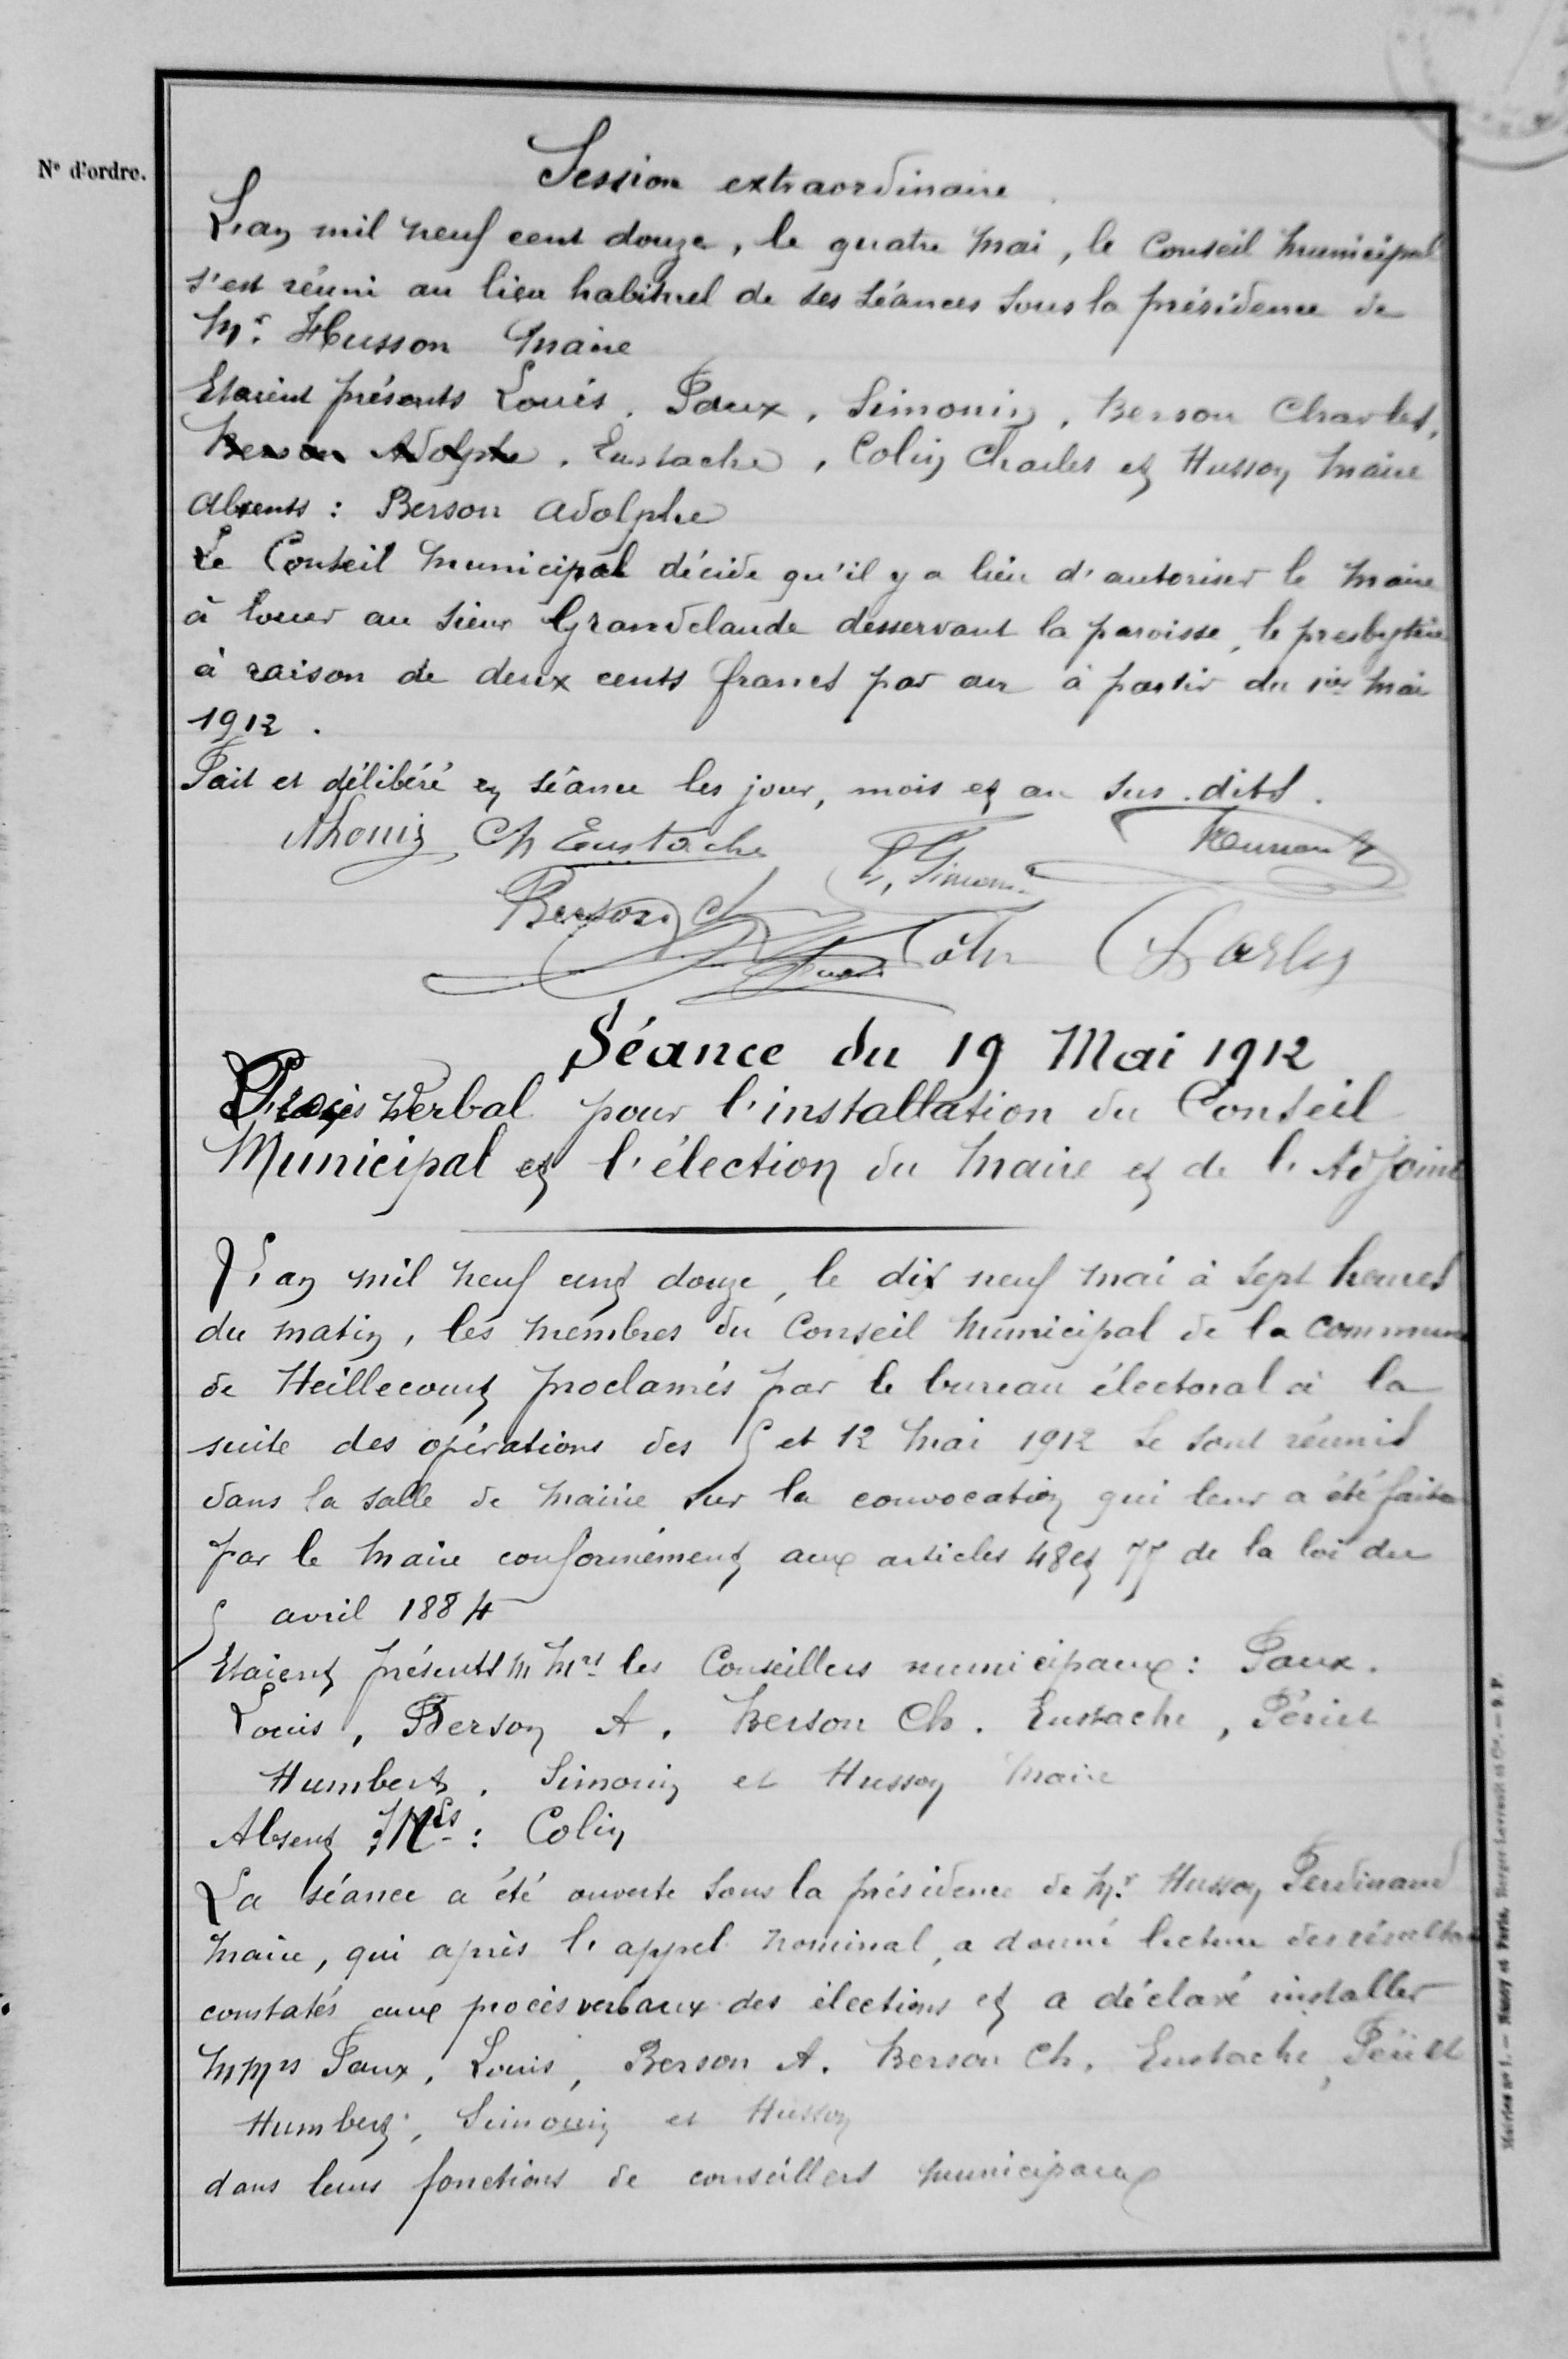 N° d'ordre.
Session extraordinaire
L'an mil neuf cent douze, le quatre Mai, le Conseil Municipal
s'est réuni au lieu habituel de ses séances sous la présidence de
Mr. Husson Maire
Etaient présents Louis, Paux, Simonin, Berson Charles,
Berson Adolphe, Eustache, Colin Charles et Husson Maire
Absents : Berson Adolphe
Le Conseil Municipal décide qu'il y a lieu d'autoriser le Maire
à louer au sieur Grandclaude desservant la paroisse, le presbytère
à raison de deux cents francs par an à partir du 1er Mai
1912.
Fait et délibéré en séance les jour, mois et an sus-dits.
Ch Eustache
Berson Ch
Colin Charles
Séance du 19 Mai 1912
Procès Verbal pour l'installation du Conseil
Municipal et l'élection du Maire et de l'Adjoint
L'an mil neuf cent douze, le dix neuf mai à sept heures
du matin, les membres du Conseil Municipal de la commune
de Heillecourt proclamés par le bureau électoral à la
suite des opérations des 5 et 12 Mai 1912 se sont réunis
dans la salle de Mairie sur la convocation qui leur a été faite
par le Maire conformément aux articles 48 et 77 de la loi du
5 avril 1884
Etaient présents MMrs les Conseillers municipaux : Paux.
Louis, Berson A. Berson Ch. Eustache,
Humbert, Simonin et Husson Maire
Absent Mrs : Colin
La séance a été ouverte sous la présidence de Mr Husson Ferdinand
Maire, qui après l'appel nominal, a donné lecture des résultats
constatés aux procès verbaux des élections et a déclaré installer
MMrs Paux, Louis, Berson A. Berson Ch. Eustache,
Humbert, Simonin et Husson
dans leurs fonctions de conseillers municipaux
Mairies n° 1. — Nancy et Paris, Berger-Levrault et Cie. — 9. P.